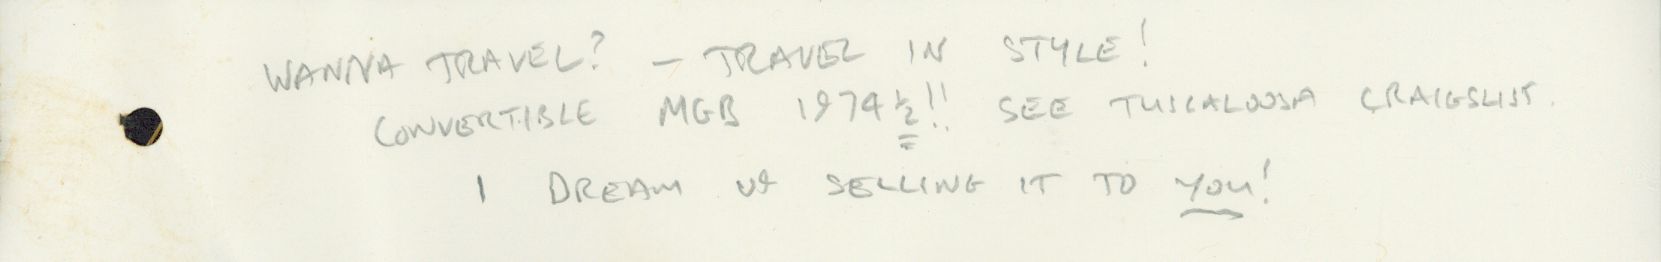 WANNA TRAVEL? – TRAVEL IN STYLE!
CONVERTIBLE MGB 1974½!! SEE TUSCALOOSA CRAIGSLIST.
I DREAM OF SELLING IT TO YOU!